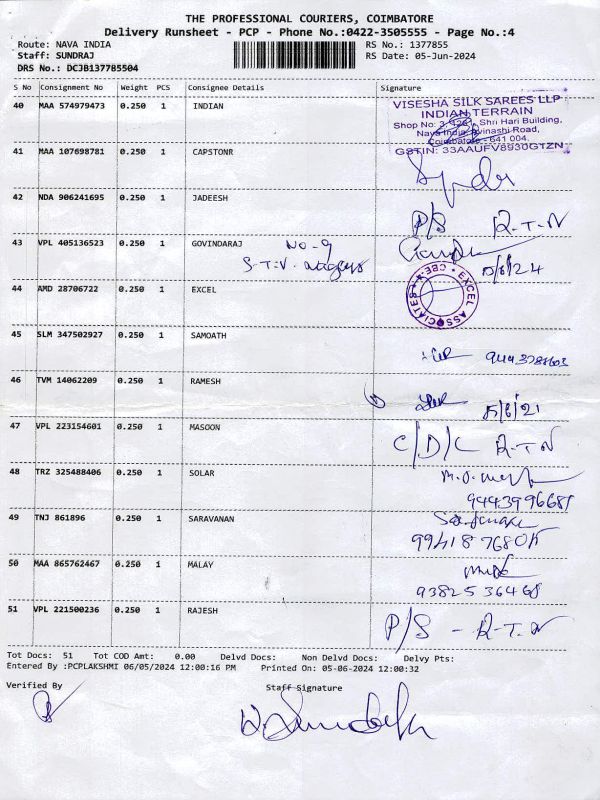 THE PROFESSIONAL COURIERS, COIMBATORE
Delivery Runsheet - PCP - Phone No.:0422-3505555 - Page No.:4
Route: NAVA INDIA RS No.: 1377855
Staff: SUNDRAJ RS Date: 05-Jun-2024
DRS No.: DCJB137785504
S No Consignment No Weight PCS Consignee Details Signature
40 MAA 574979473 0.250 1 INDIAN
VISESHA SILK SAREES LLP
INDIAN TERRAIN
Shop No: 3, Shri Hari Building,
Nava India, Avinashi Road,
Coimbatore - 641 004.
GSTIN: 33AAUFV8930G1ZN
41 MAA 107698781 0.250 1 CAPSTONR
42 NDA 906241695 0.250 1 JADEESH P/S R-T-N
43 VPL 405136523 0.250 1 GOVINDARAJ NO-9
S-T-V- Nagar 5/6/24
44 AMD 28706722 0.250 1 EXCEL EXCEL ASSOCIATES * CBE *
45 SLM 347502927 0.250 1 SAMOATH
46 TVM 14062209 0.250 1 RAMESH
47 VPL 223154601 0.250 1 MASOON C/D/L R-T-N
48 TRZ 325488406 0.250 1 SOLAR
49 TNJ 861896 0.250 1 SARAVANAN
50 MAA 865762467 0.250 1 MALAY
51 VPL 221500236 0.250 1 RAJESH P/S - R-T-N
Tot Docs: 51 Tot COD Amt: 0.00 Delvd Docs: Non Delvd Docs: Delvy Pts:
Entered By :PCPLAKSHMI 06/05/2024 12:00:16 PM Printed On: 05-06-2024 12:00:32
Verified By Staff Signature